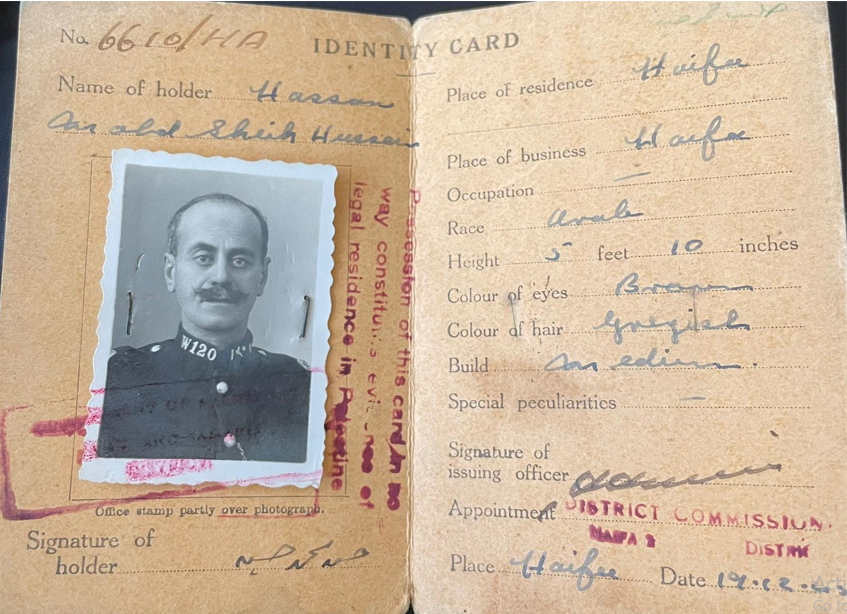 IDENTITY CARD
No. 6610/HA
Name of holder Hassan
Sheik Hussein
W120
Possession of this card in no
way constitutes evidence of
legal residence in Palestine
DISTRICT
Office stamp partly over photograph.
Signature of
holder
Place of residence Haifa
Place of business Haifa
Occupation —
Race Arab
Height 5 feet 10 inches
Colour of eyes Brown
Colour of hair Greyish
Build Medium.
Special peculiarities —
Signature of
issuing officer
Appointment DISTRICT COMMISSION
HAIFA DISTRI
Place Haifa Date 19.12.